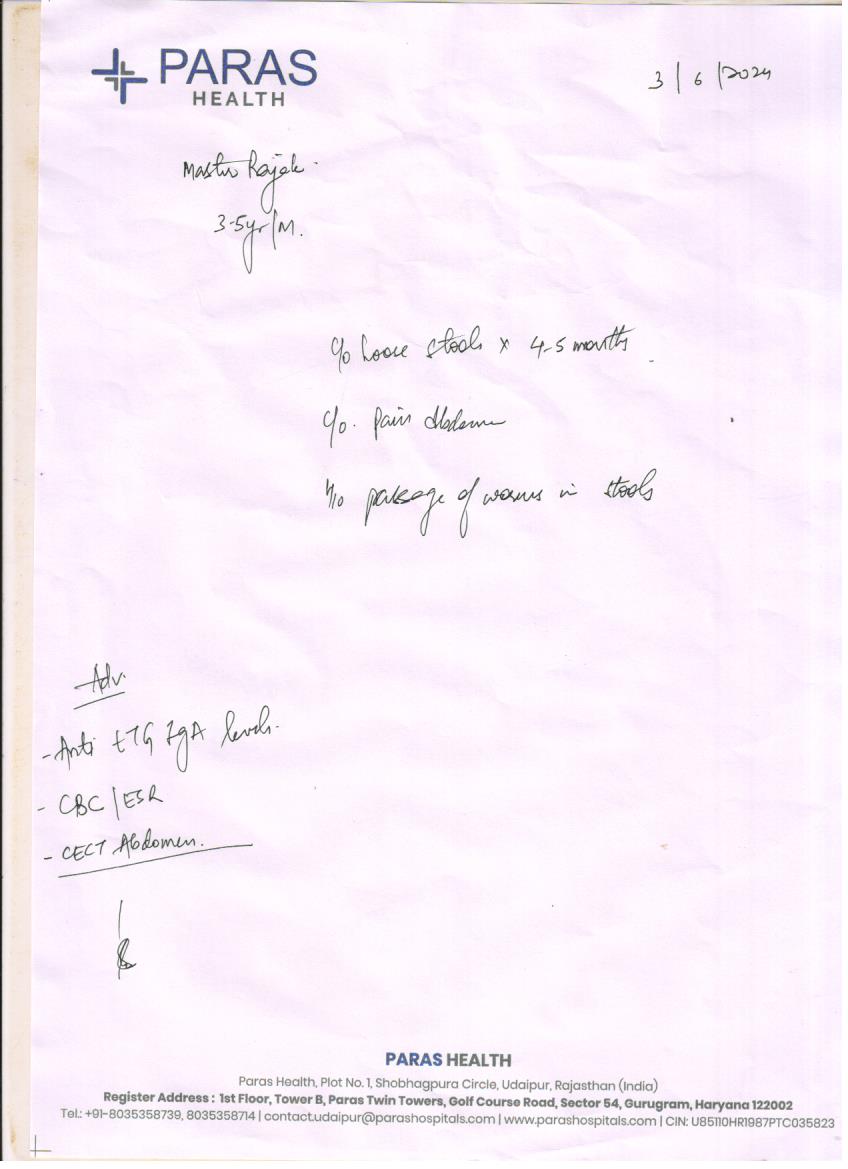 PARAS
HEALTH
3/6/2024
Master
3.5yr/M.
c/o Loose stools x 4-5 months
c/o. Pain Abdomen
h/o passage of worms in stools
Adv.
- Anti tTG IgA levels.
- CBC/ESR
- CECT Abdomen.
PARAS HEALTH
Paras Health, Plot No. 1, Shobhagpura Circle, Udaipur, Rajasthan (India)
Register Address : 1st Floor, Tower B, Paras Twin Towers, Golf Course Road, Sector 54, Gurugram, Haryana 122002
Tel.: +91-8035358739, 8035358714 | contact.udaipur@parashospitals.com | www.parashospitals.com | CIN: U85110HR1987PTC035823